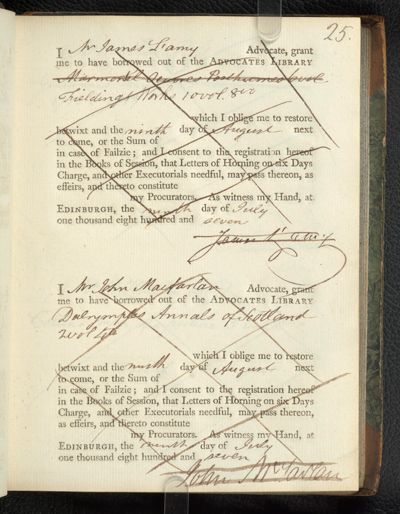 25.
I Mr James L'amy Advocate, grant
me to have borrowed out of the ADVOCATES LIBRARY
Marmontel Oeuvres Posthumes
Fieldings Works 10 vol. 8vo
which I oblige me to restore
betwixt and the ninth day of August next
to come, or the Sum of
in case of Failzie; and I consent to the registration hereof
in the Books of Session, that Letters of Horning on six Days
Charge, and other Executorials needful, may pass thereon, as
effeirs, and thereto constitute
my Procurators. As witness my Hand, at
EDINBURGH, the ninth day of July
one thousand eight hundred and seven
James L'amy
I Mr John Macfarlan Advocate, grant
me to have borrowed out of the ADVOCATES LIBRARY
Dalrymples Annals of Scotland
2 vol 4to
which I oblige me to restore
betwixt and the ninth day of August next
to come, or the Sum of
in case of Failzie; and I consent to the registration hereof
in the Books of Session, that Letters of Horning on six Days
Charge, and other Executorials needful, may pass thereon,
as effeirs, and thereto constitute
my Procurators. As witness my Hand, at
EDINBURGH, the ninth day of July
one thousand eight hundred and seven
John McFarlan